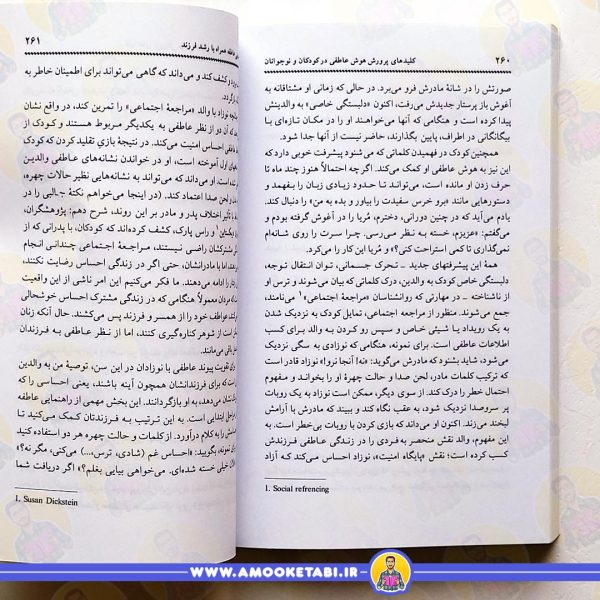 ۲۶۰ کلیدهای پرورش هوش عاطفی در کودکان و نوجوانان
صورتش را در شانهٔ مادرش فرو می‌برد. در حالی که زمانی او مشتاقانه به
آغوش باز پرستار جدیدش می‌رفت، اکنون «دلبستگی خاصی» به والدینش
پیدا کرده است و هنگامی که آنها می‌خواهند او را در مکان تازه‌ای با
بیگانگانی در اطراف، پایین بگذارند، حاضر نیست از آنها جدا شود.
همچنین کودک در فهمیدن کلماتی که می‌شنود پیشرفت خوبی دارد که
این نیز به هوش عاطفی او کمک می‌کند. اگر چه احتمالاً هنوز چند ماه تا
حرف زدن او مانده است، می‌توانـد تـا حـدود زیادی زبان را بـفهمد و
دستورهایی مانند «برو خرس سفیدت را بیاور و بده به من» را دنبال کند.
یادم می‌آید که در چنین دورانی، دخترم، مُریا را در آغوش گرفته بودم و
می‌گفتم: «عزیزم، خسته به نظر می‌رسی. چرا سرت را روی شانه‌ام
نمی‌گذاری تا کمی استراحت کنی؟» و مُریا این کار را می‌کرد.
همهٔ این پیشرفتهای جدید ـ تـحرک جسـمانی، تـوان انـتقال توجه،
دلبستگی خاص کودک به والدین، درک کلماتی که بیان می‌شوند و ترس او
از ناشناخته ـ در مهارتی که روانشناسان «مراجعهٔ اجتماعی»۱ می‌نامند،
جمع می‌شوند. منظور از مراجعه اجتماعی، تمایل کودک به نزدیک شدن
به یک رویداد یـا شـیئی خاص و سپس رو کردن به والد برای کسب
اطلاعات عاطفی است. برای نمونه، هنگامی که نوزادی به سگی نزدیک
می‌شود، شاید بشنود که مادرش می‌گوید: «نه! آنجا نرو!» نوزاد قادر است
که ترکیب کلمات مادر، لحن صدا و حالت چهرهٔ او را بخواند و مفهوم
احتمال خطر را درک کند. از سوی دیگر، ممکن است نوزاد به یک روبات
پر سروصدا نزدیک شود، به عقب نگاه کند و ببیند که مادرش با آرامش
لبخند می‌زند. اکنون او می‌داند که بازی کردن با روبات بی‌خطر است. به
این مفهوم، والد نقش منحصر به فردی را در زندگی عاطفی فرزندش
کسب کرده است؛ نقش «پایگاه امنیت»، نوزاد احساس می‌کند که آزاد
1. Social refrencing
رشد فرزند ۲۶۱
و کشف کند و می‌داند که گاهی می‌تواند برای اطمینان خاطر به
نوزاد با والد «مراجعهٔ اجتماعی» را تمرین کند، در واقع نشان
که آن دو از نظر عاطفی به یکدیگر مربوط هستند و کودک از
عاطفی احساس امنیت می‌کند. در نتیجهٔ بازیِ تقلید کردن که کودک
اول آموخته است، او در خواندن نشانه‌های عاطفی والدین
است. او می‌داند که می‌تواند به نشانه‌هایی نظیر حالات چهره،
و لحن صدا اعتماد کند. (در اینجا می‌خواهم نکتهٔ جالبی را در
تأثیر اختلاف پدر و مادر بر این روند، شرح دهم: پژوهشگران،
۱ و راس پارک، کشف کرده‌اند که کودکان، با پدرانی که از
مشترکشان راضی نیستند، مراجعهٔ اجتماعی چندانی انجام
اما با مادرانشان، حتی اگر در زندگی احساس رضایت نکنند،
را ادامه می‌دهند. ما فکر می‌کنیم این امر ناشی از این واقعیت
که مردان معمولاً هنگامی که در زندگی مشترک احساس خوشحالی
عواطف خود را از همسر و فرزند پس می‌گیرند. حال آنکه زنان
از شوهر کناره‌گیری کنند، اما از نظر عاطفی به فرزندان
باقی می‌مانند).
تقویت پیوند عاطفی با نوزادان در این سن، توصیهٔ من به والدین
که برای فرزندانشان همچون آینه باشند، یعنی احساسی را که
نشان می‌دهد، به او بازگردانند. این بخش مهمی از راهنمایی عاطفه
ابتدایی است. به این ترتیب به فرزندتان کمک می‌کنید تا
را به کلام درآورد. از کلمات و حالت چهره هر دو استفاده کنید
نمونه، بگویید: «احساس غم (شادی، ترس...) می‌کنی، مگر نه؟»
خیلی خسته شده‌ای. می‌خواهی بیایی بغلم؟» اگر دریافت شما
1. Susan Dickstein
WWW.AMOOKETABI.IR